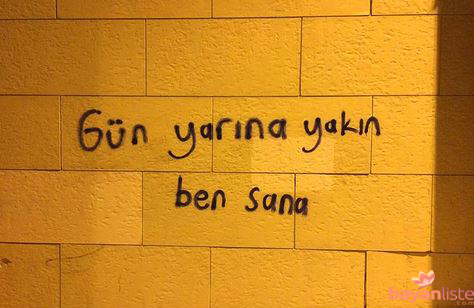 Gün yarına yakın
ben sana
bayanliste